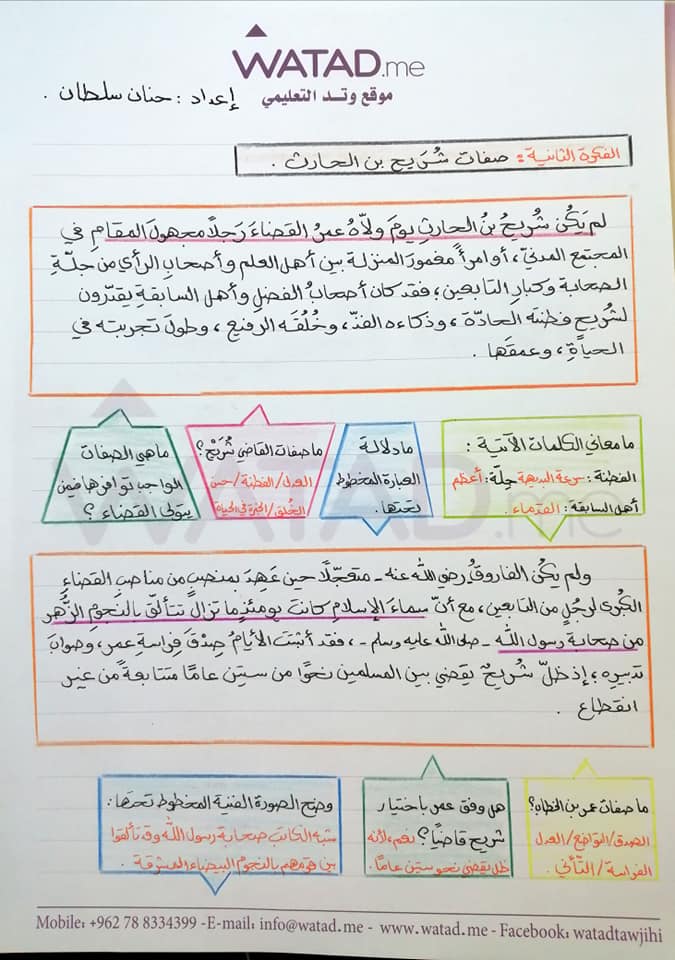 WATAD.me
موقع وتد التعليمي
إعداد : حنان سلطان .
الفكرة الثانية : صفات شُرَيح بن الحارث .
لم يَكُن شُريحُ بنُ الحارثِ يومَ ولّاهُ عمرُ القضاءَ رَجلاً مجهولَ المقامِ في
المجتمع المدنيّ ، أو امرأً مغمورَ المنزلة بين أهل العلم وأصحابِ الرأي من جِلّةِ
الصحابة وكبارِ التابعين ؛ فقد كان أصحابُ الفضلِ وأهل السابقةِ يقدّرون
لشُريحٍ فطنتَه الحادّة ، وذكاءه الفذّ ، وخُلُقَه الرفيع ، وطولَ تجربته في
الحياةِ ، وعمقَها .
ما معاني الكلمات الآتية :
الفطنة : سرعة البديهة جِلّة : أعظم
أهل السابقة : القدماء .
ما دلالة
العبارة المخطوط
تحتها .
ما صفات القاضي شُرَيْح ؟
العدل / الفطنة / حسن
الخُلق / الخبرة في الحياة
ما هي الصفات
الواجب توافرها فيمن
يتولى القضاء ؟
ولم يكُن الفاروقُ رضي الله عنه - متعجّلاً حين عَهِدَ بمنصبٍ من مناصبِ القضاءِ
الكُبرى لرجُلٍ من التابعين ، مع أنّ سماءَ الإسلامِ كانت يومئذٍ ما تزال تتألّق بالنجومِ الزُّهر
من صحابة رسول الله - صلى الله عليه وسلم - ، فقد أثبتَ الأيامُ صِدْقَ فِراسةِ عمر ، وصوابَ
تدبيرِه ؛ إذ ظلّ شريحٌ يَقضي بين المسلمين نحوًا من ستين عامًا متتابعةً من غير
انقطاع .
ما صفات عمر بن الخطاب ؟
الصدق / التواضع / العدل
الفراسة / التأني .
هل وفق عمر باختيار
شريح قاضيًا ؟ نعم ، لأنه
ظل يقضي نحو ستين عامًا .
وضح الصورة الفنية المخطوط تحتها :
شبه الكاتب صحابة رسول الله وقد تألقوا
بالنجوم البيضاء المشرقة .
Mobile: +962 78 8334399 -E-mail: info@watad.me - www.watad.me - Facebook: watadtawjihi
WATAD.me